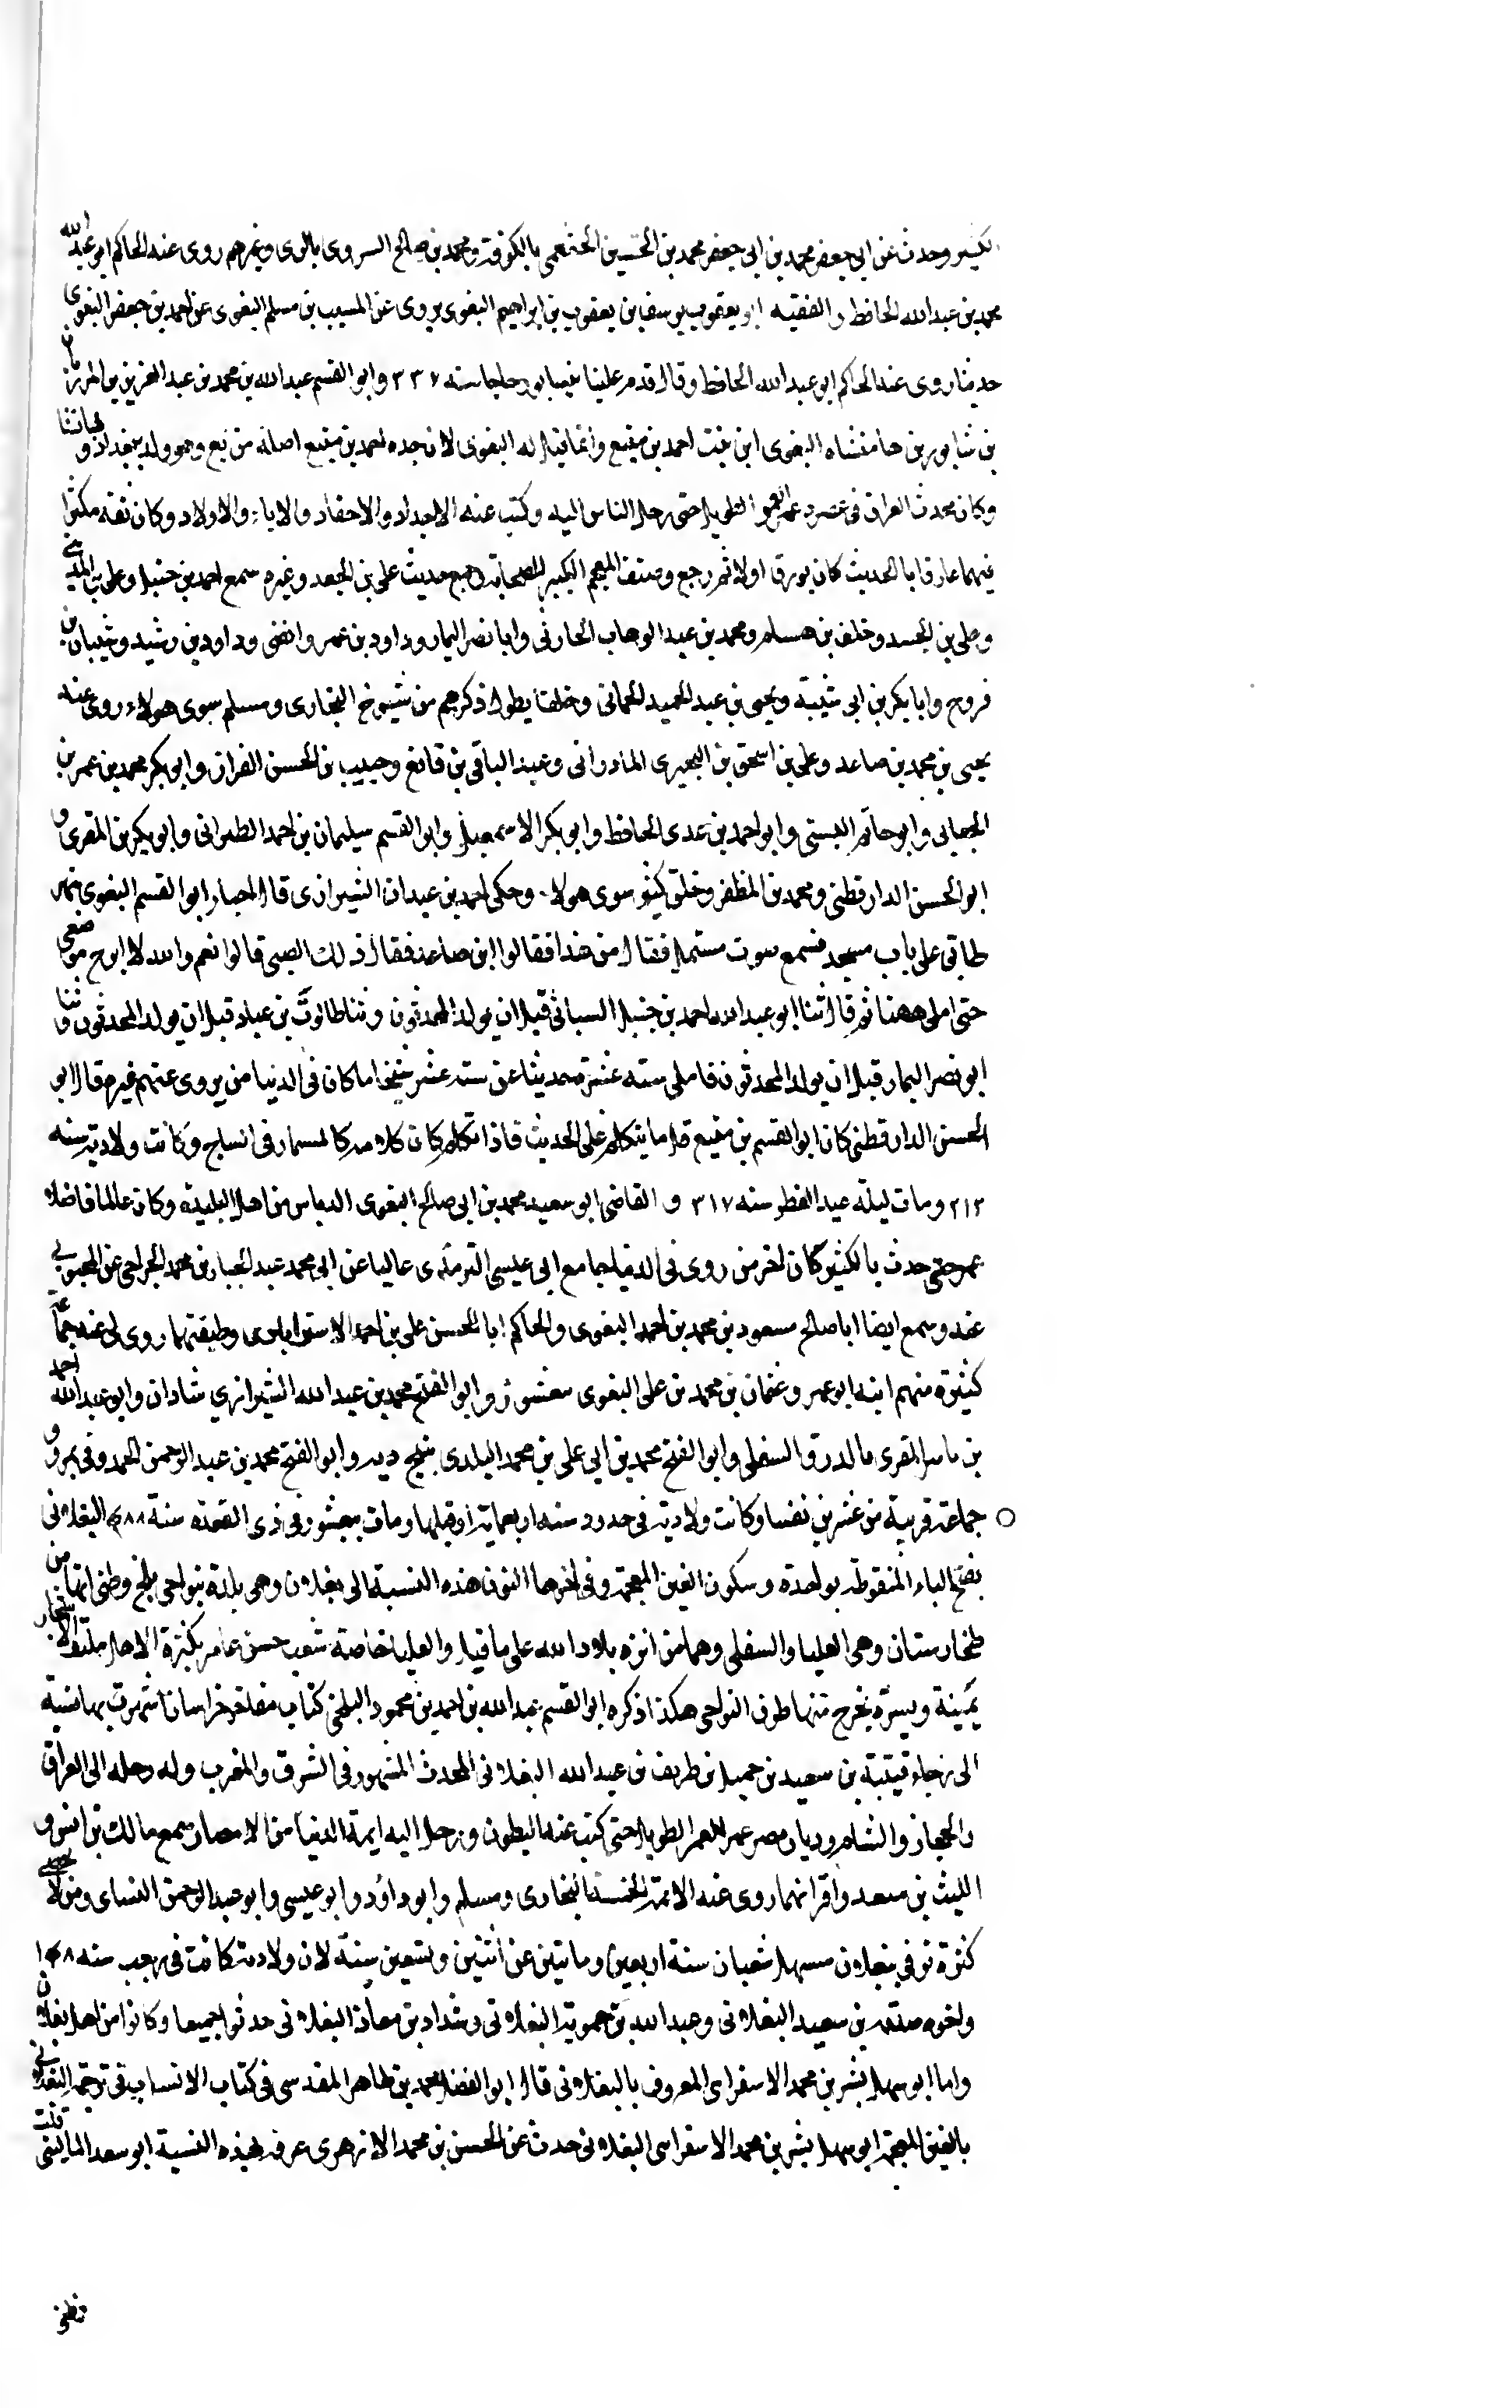 الكثير وحدث عن ابى جعفر محمد بن ابى جعفر محمد بن الحسين الخثعمى بالكوفة ومحمد بن صالح السروى بالرى وغيرهم روى عنه الحاكم ابو عبد الله
محمد بن عبد الله الحافظ والفقيه ابو يعقوب يوسف بن يعقوب بن ابراهيم البغوى يروى عن المسيب بن مسلم البغوى عن احمد بن جعفر البغوى
حديثا روى عنه الحاكم ابو عبد الله الحافظ وقال قدم علينا نيسابور حاجا سنه ٣٣٧ وابو القسم عبد الله بن محمد بن عبد العزيز بن المرزبان
بن شابور بن شاهنشاه البغوى ابن بنت احمد بن منيع وانما قيل له البغوى لان جده احمد بن منيع اصله من بغ وهو ولد ببغداد و بها نشا
وكان محدث العراق فى عصره عمر العمر الطويل حتى رحل الناس اليه وكتب عنه الاجداد والاحفاد والاباء والاولاد وكان ثقه مكثرا
فهما عارفا بالحديث كان يورق اولا ثم رجع وصنف المعجم الكبير للصحابة وجمع حديث على بن الجعد وغيره سمع احمد بن حنبل وعلى بن المدينى
وعلى بن الجعد وخلف بن هشام ومحمد بن عبد الوهاب الحارثى وابا نصر التمار وداود بن عمرو الضبى وداود بن رشيد وشيبان بن
فروخ وابا بكر بن ابى شيبة ويحيى بن عبد الحميد الحمانى وخلقا يطول ذكرهم من شيوخ البخارى ومسلم سوى هولاء روى عنه
يحيى بن محمد بن صاعد وعلى بن اسحق بن البحيرى الماذرانى وعبد الباقى بن قانع وحبيب بن الحسن القزاز وابو بكر محمد بن عمر بن
الجعابى وابو حاتم البستى وابو احمد بن عدى الحافظ وابو بكر الاسمعيلى وابو القسم سليمان بن احمد الطبرانى وابو بكر بن المقرى و
ابو الحسن الدارقطنى ومحمد بن المظفر وخلق كثير سوى هولاء وحكى احمد بن عبدان الشيرازى قال اجتاز ابو القسم البغوى بنهر
طابق على باب مسجد فسمع صوت مستمل فقال من هذا فقالوا ابن صاعد فقال ذلك الصبى قالوا نعم والله لا ابرح موضعى
حتى املى ههنا ثم قال ثنا ابو عبد الله احمد بن حنبل الشيبانى قبل ان يولد المحدثون وثنا طالوت بن عباد قبل ان يولد المحدثون وثنا
ابو نصر التمار قبل ان يولد المحدثون فاملى ستة عشر حديثا عن ستة عشر شيخا ما كان فى الدنيا من يروى عنهم غيره قال ابو
الحسن الدارقطنى كان ابو القسم بن منيع قل ما يتكلم على الحديث فاذا تكلم كان كلامه كالمسمار فى الساج وكانت ولادته سنه
٢١٣ ومات ليلة عيد الفطر سنه ٣١٧ و القاضى ابو سعيد محمد بن ابى صالح البغوى الدباس من اهل البليدة وكان عالما فاضلا
عمر حتى حدث بالكثير كان اخر من روى فى الدنيا جامع ابى عيسى الترمذى عاليا عن ابى محمد عبد الجبار بن محمد الجراحى عن المحبوبى
عنه وسمع ايضا ابا صالح مسعود بن محمد بن احمد البغوى والحاكم ابا الحسن على بن احمد الاستراباذى وطبقتهما روى لى عنه جماعة
كثيرة منهم ابنه ابو عمرو عثمان بن محمد بن على البغوى ببغشور وابو الفتح محمد بن عبد الله الشيرازي شادان وابو عبد الله احمد
بن المقرى بالدرق السفلى وابو الفتح محمد بن ابى على بن محمد البلدى بپنج ديه وابو الفتح محمد بن عبد الرحمن الحمدونى بمرو و
جماعة قريبة من عشرين نفسا وكانت ولادته فى حدود سنه اربعماية او قبلها ومات ببغشور فى ذى القعده سنة ٤٨٨ البغلانى
بفتح الباء المنقوطه بواحدة وسكون الغين المعجمة وفى اخرها النون هذه النسبة الى بغلان وهى بلدة بنواحى بلخ وظنى انها من
طخارستان وهى العليا والسفلى وهما من انزه بلاد الله على ما قيل والعليا خاصة شعب حسن عامر بكثرة الاهل ملتف الاشجار
يمينة ويسرة يخرج منها طرف النواحى هكذا ذكره ابو القسم عبد الله بن احمد بن محمود البلخى كتاب مفاخر خراسان اشتهرت بها نسبة
الى رجاء قتيبة بن سعيد بن جميل بن طريف بن عبد الله البغلانى المحدث المشهور فى الشرق والمغرب وله رحله الى العراق
والحجاز والشام وديار مصر عمر العمر الطويل حتى كتب عنه البطون ورحل اليه ايمة الدنيا من الامصار سمع مالك بن انس و
الليث بن سعد واقرانهما روى عنه الائمة الخمسة البخارى ومسلم وابو داؤد وابو عيسى وابو عبد الرحمن النساى ومن لا يحصى
كثرة توفى ببغلان مستهل شعبان سنة اربعين وماتين عن اثنين وتسعين سنة لان ولادته كانت فى رجب سنه ١٤٨
واخوه صدقه بن سعيد البغلانى وعبد الله بن حمويه البغلانى وشداد بن معاذ البغلانى حدثوا جميعا وكانوا من اهل بغلان
واما ابو سهل بشر بن محمد الاسفراى المعروف بالبغلانى قال ابو الفضل محمد بن طاهر المقدسى فى كتاب الانساب فى ترجمة البغلانى
بالغين المعجمة ابو سهل بشر بن محمد الاسفراسى البغلانى حدث عن الحسن بن محمد الازهرى عرفه بهذه النسبة ابو سعد المالينى قلت
وظنى